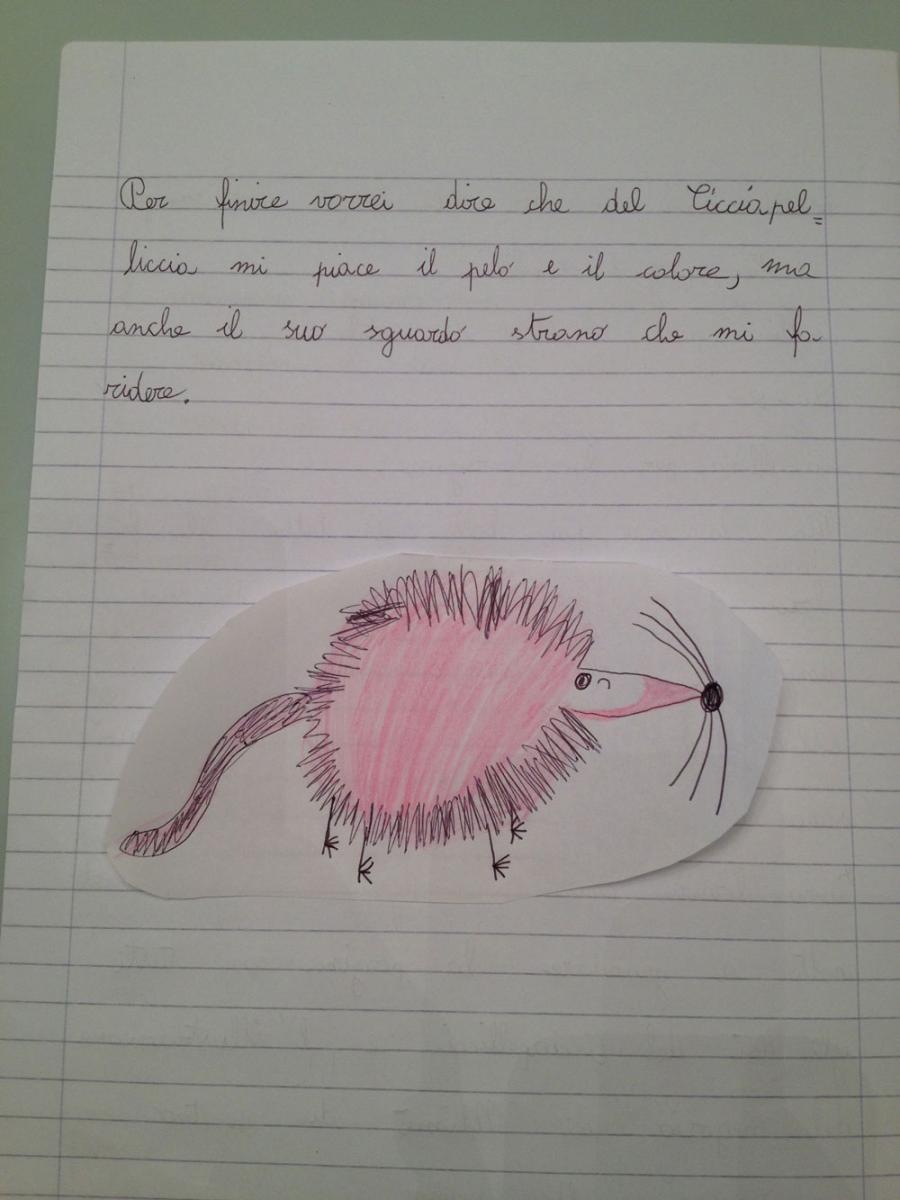 Per finire vorrei dire che del Cicciapel=
liccia mi piace il pelo e il colore, ma
anche il suo sguardo strano che mi fa
ridere.